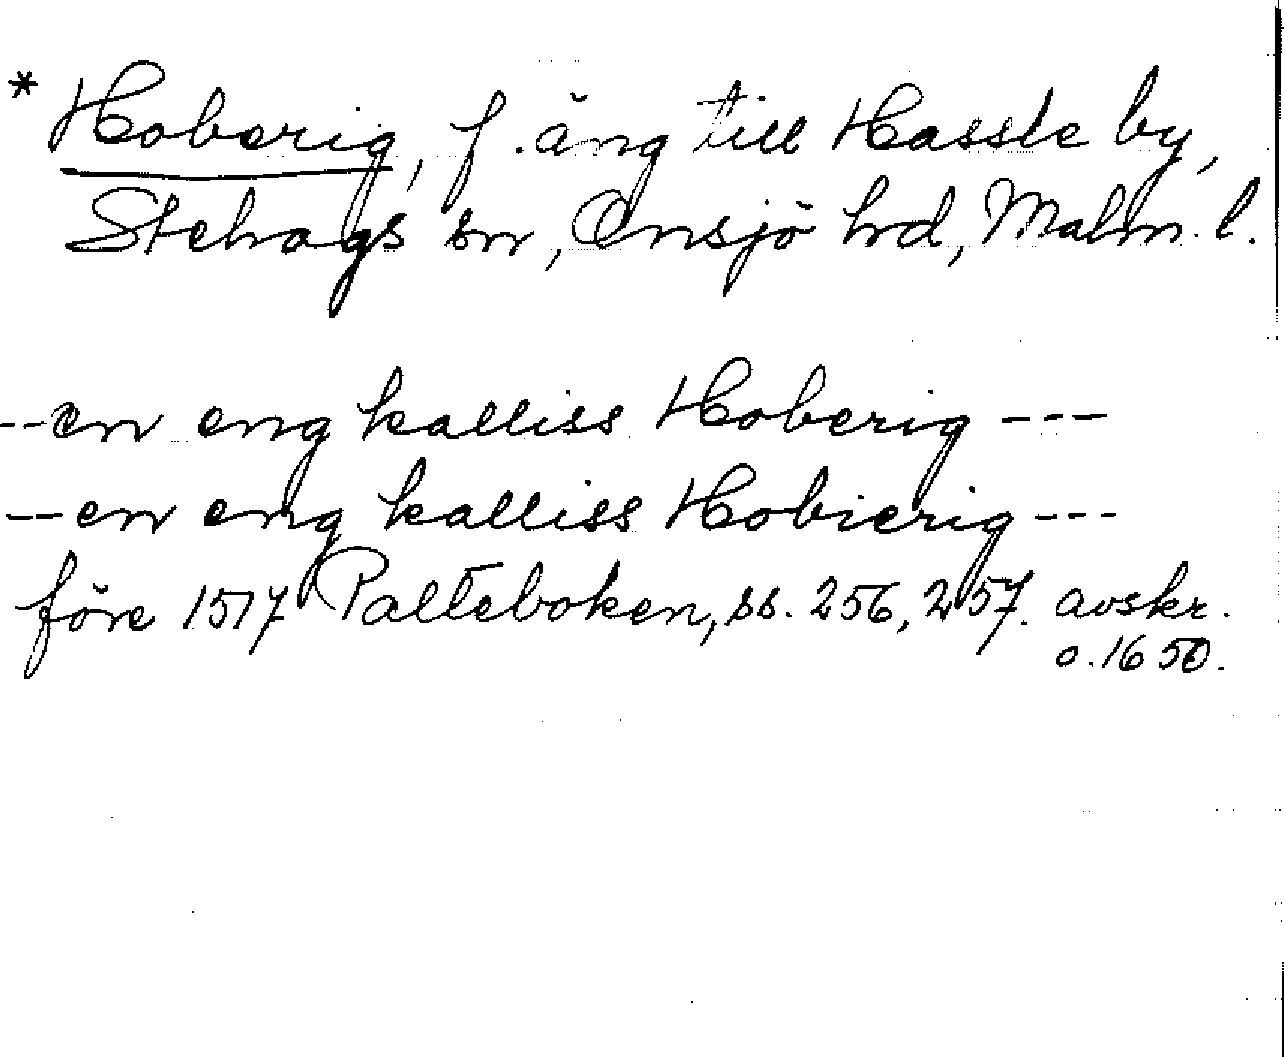 * Hoberig, f. äng till Hassle by,
Stehags sn, Onsjö hd, Malm. l.
--en eng kalliss Hoberig ---
--en eng kalliss Hobierig ---
före 1517 Palteboken, ss. 256, 257. avskr.
o. 1650.